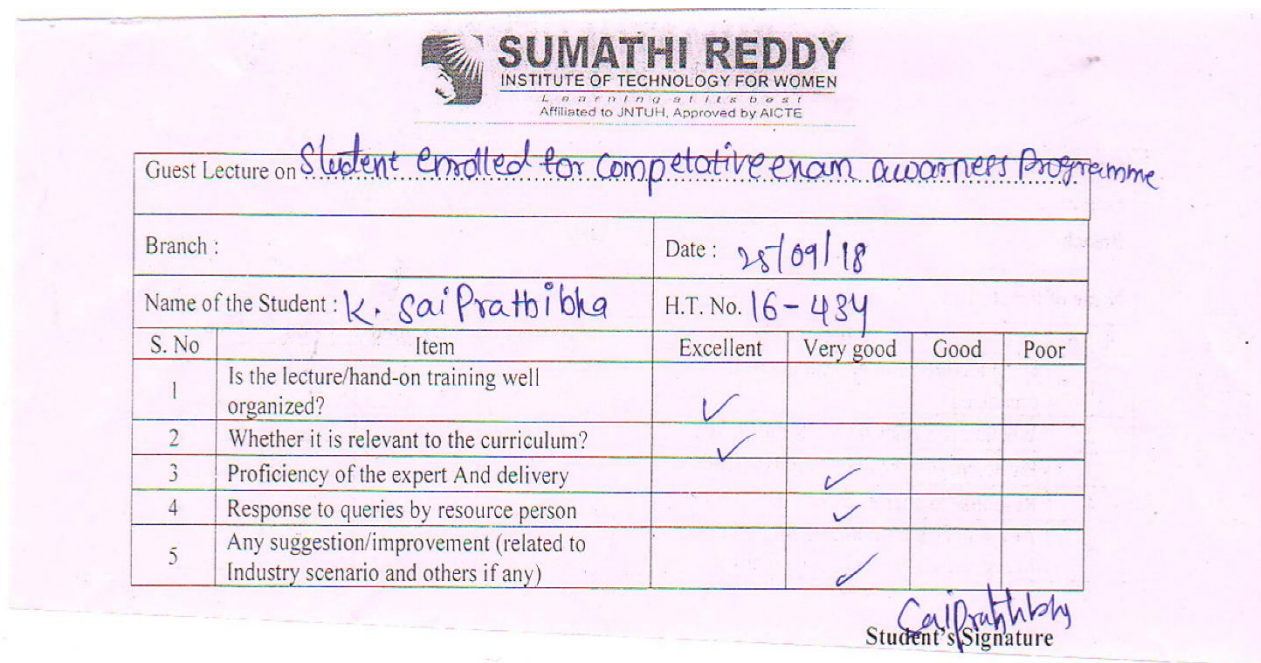 SUMATHI REDDY
INSTITUTE OF TECHNOLOGY FOR WOMEN
Learning at its best
Affiliated to JNTUH, Approved by AICTE
Guest Lecture on Student enrolled for competative exam awarness Programme
Branch :
Date : 25/09/18
Name of the Student : K. Sai Prathibha
H.T. No. 16-434
S. No Item Excellent Very good Good Poor
1 Is the lecture/hand-on training well
organized? ✓
2 Whether it is relevant to the curriculum? ✓
3 Proficiency of the expert And delivery ✓
4 Response to queries by resource person ✓
5 Any suggestion/improvement (related to
Industry scenario and others if any) ✓
Saiprathibha
Student's Signature